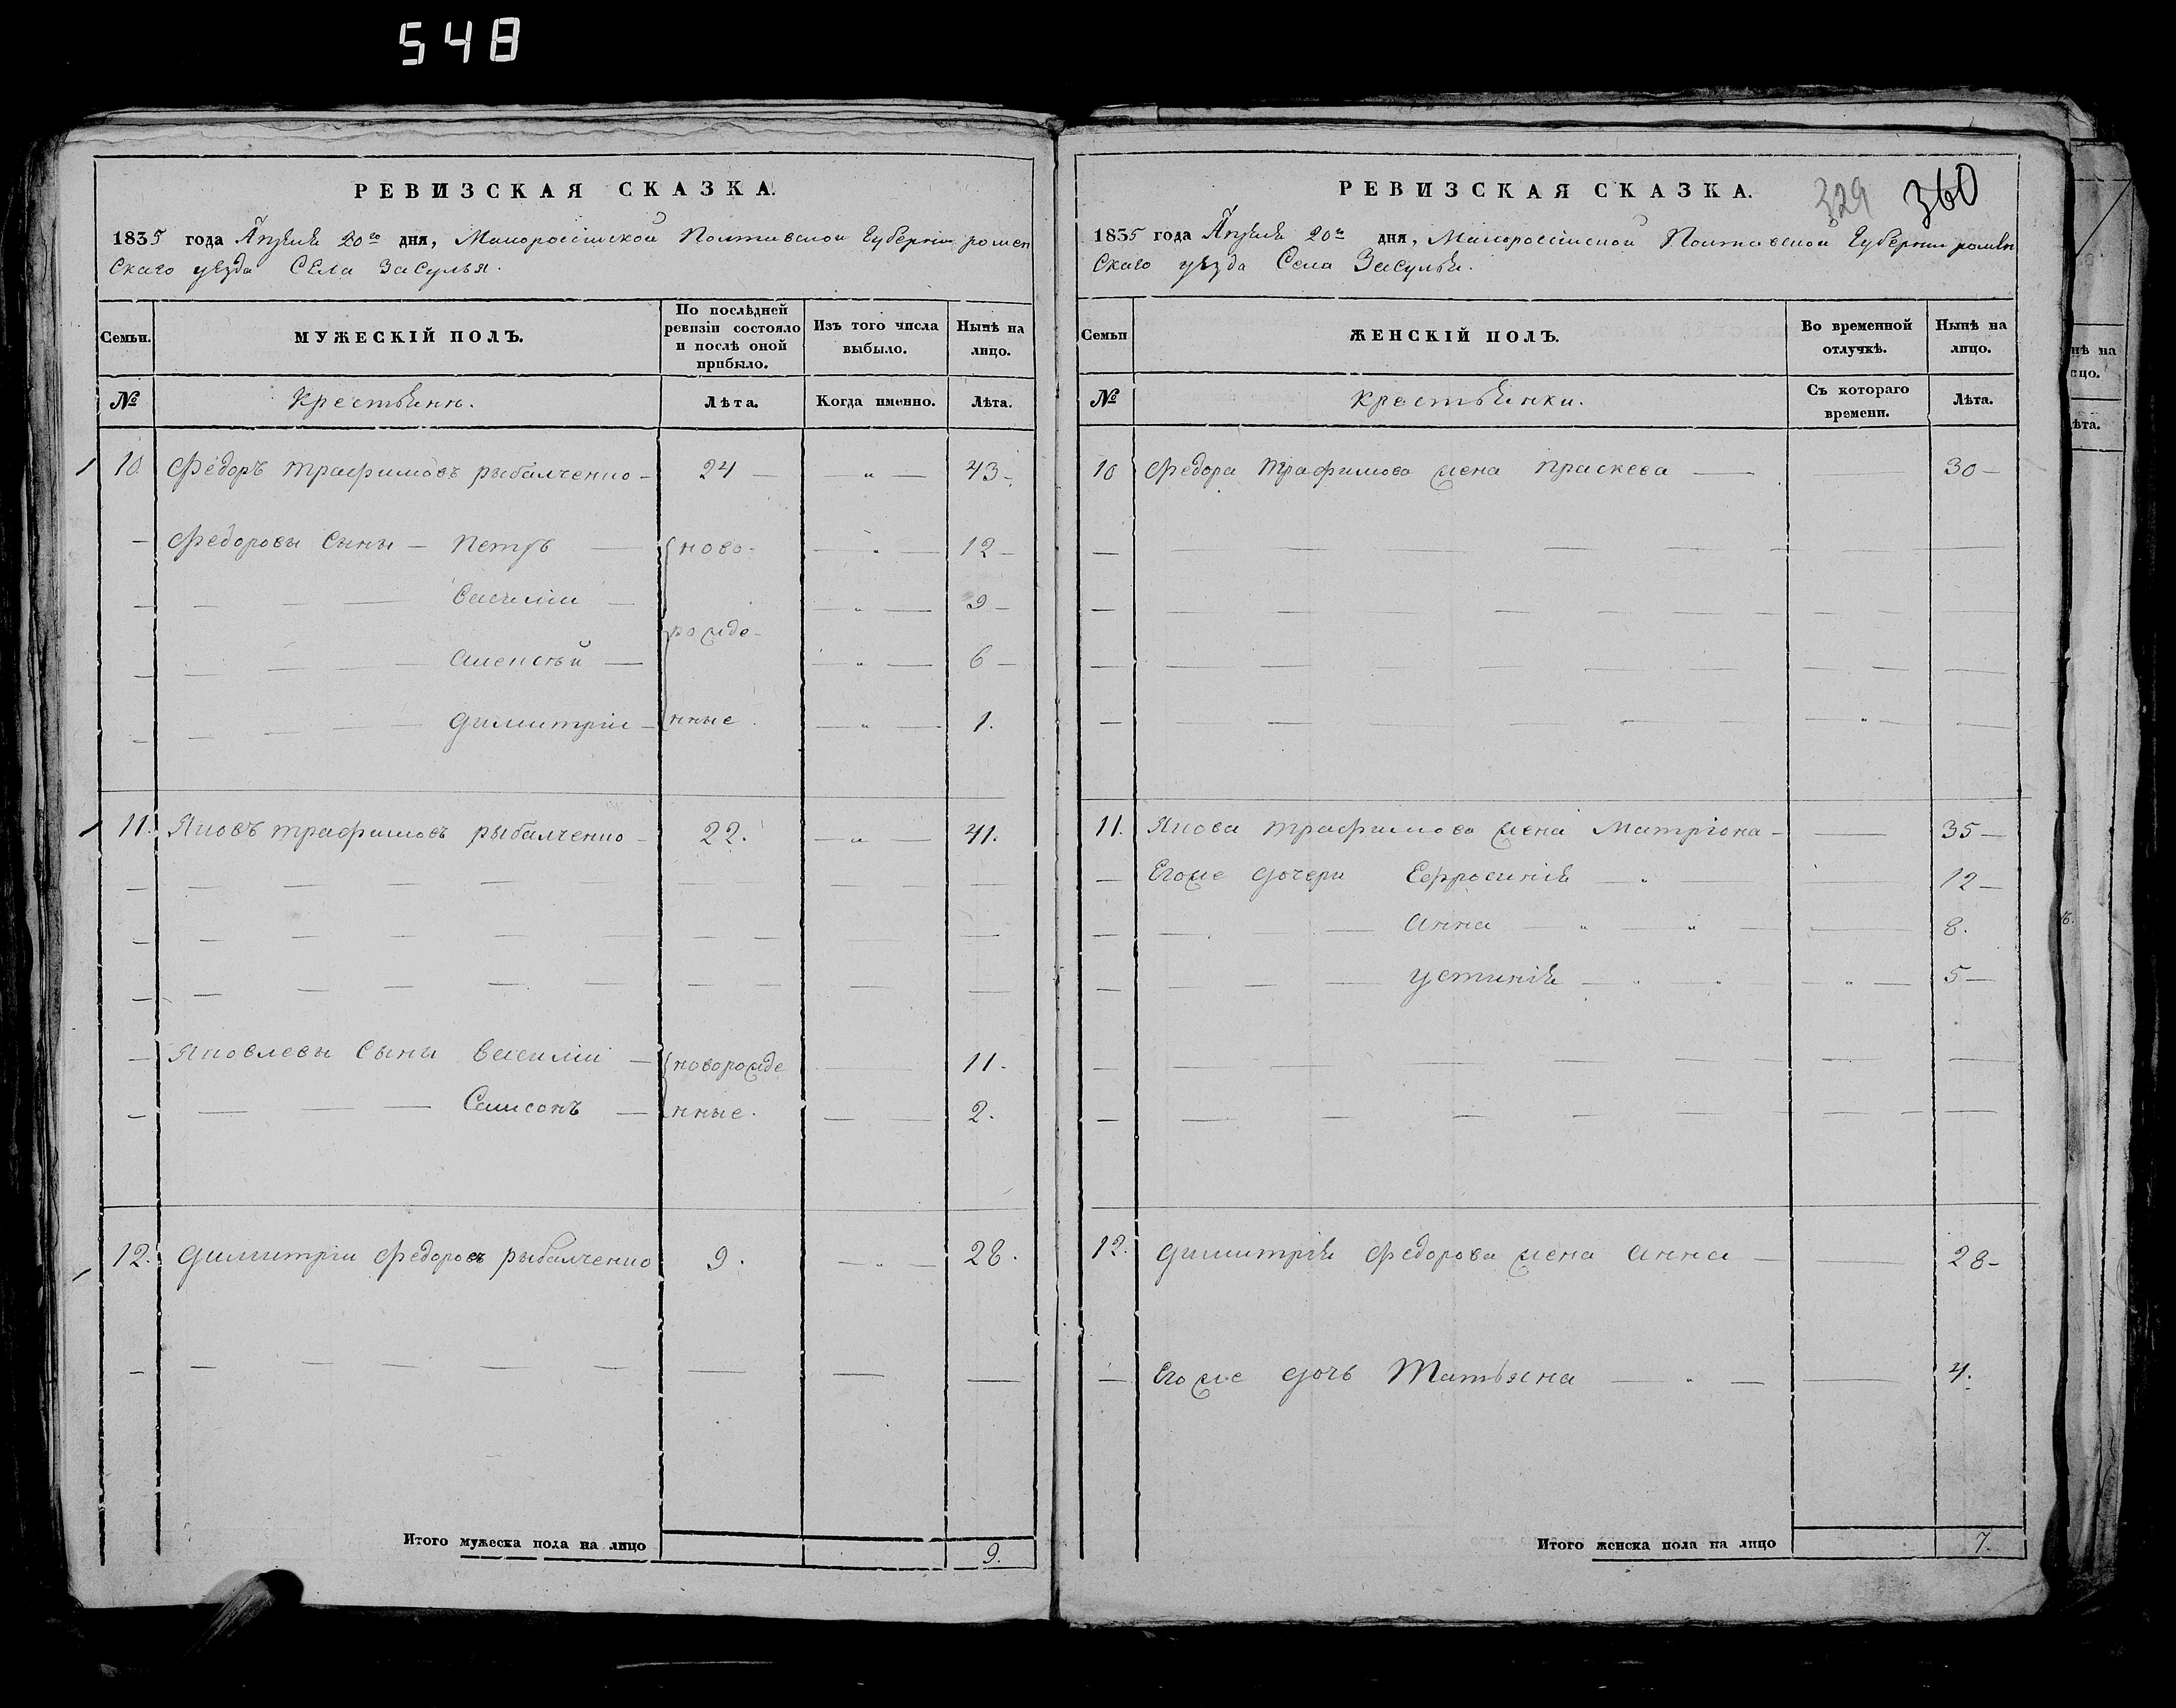 548
РЕВИЗСКАЯ СКАЗКА.
1835 года Апреля 20го дня, Малороссійской Полтавской Губерніи ромен
Скаго уезда Села Засулья.
Семьи.
МУЖЕСКІЙ ПОЛЪ.
По послѣдней ревизіи состояло и послѣ оной прибыло.
Изъ того числа выбыло.
Нынѣ на лицо.
№
Крестьяни.
Лѣта.
Когда именно.
Лѣта.
10 Федоръ Трафимовъ рыбалченко 24 43
Федоровы Сыны Петръ ново- 12
Василій 9
рожде-
Алексѣй 6
Димитрій нные. 1.
11. Яковъ трафимовъ рыбалченко 22. 41.
Яковлевы Сыны Василій новорожде 11.
Самсонъ нные. 2.
12. Димитрій Федоровъ рыбалченко 9. 28.
Итого мужеска пола на лицо 9.
329 360
РЕВИЗСКАЯ СКАЗКА.
1835 года Апреля 20го дня, Малороссійской Полтавской Губерніи ромен
Скаго уезда Села Засулья.
Семьи
ЖЕНСКІЙ ПОЛЪ.
Во временной отлучкѣ.
Нынѣ на лицо.
№
Крестьянки.
Съ котораго времени.
Лѣта.
10 Федора Трафимова жена Праскева 30
11. Якова трафимова жена Матріона 35
Егоже дочери Ефросинія 12
Анна 8.
Устинія 5
12. Димитрія Федорова жена Анна 28
Егоже дочь Татьяна 4.
Итого женска пола на лицо 7.
нѣ на
цо.
ѣта.